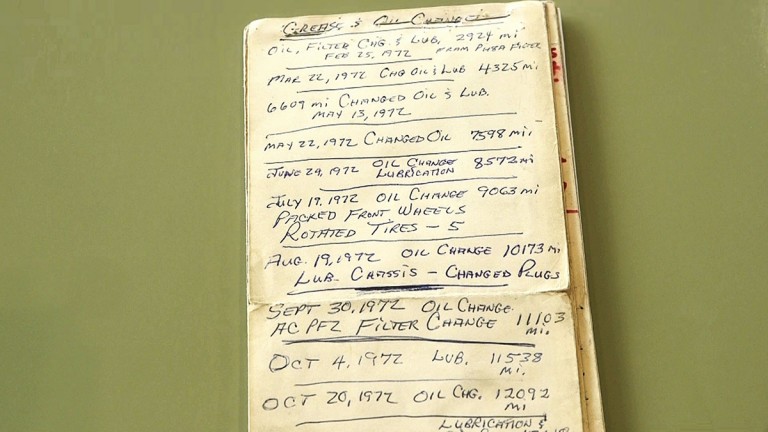 GREASE & OIL CHANGES
OIL, FILTER CHG. & LUB, 2924 mi
FEB 25, 1972 FRAM PH8A FILTER
MAR 22, 1972 CHG OIL & LUB 4325 mi
6609 mi CHANGED OIL & LUB.
MAY 13, 1972
MAY 22, 1972 CHANGED OIL 7598 mi
JUNE 29, 1972 OIL CHANGE 8572 mi
LUBRICATION
JULY 17, 1972 OIL CHANGE 9063 mi
PACKED FRONT WHEELS
ROTATED TIRES - 5
AUG. 19, 1972 OIL CHANGE 10173 mi
LUB. CHASSIS - CHANGED PLUGS
SEPT 30, 1972 OIL CHANGE
AC PF2 FILTER CHANGE 11103
mi.
OCT 4, 1972 LUB. 11538
mi.
OCT 20, 1972 OIL CHG. 12092
mi
LUBRICATION &